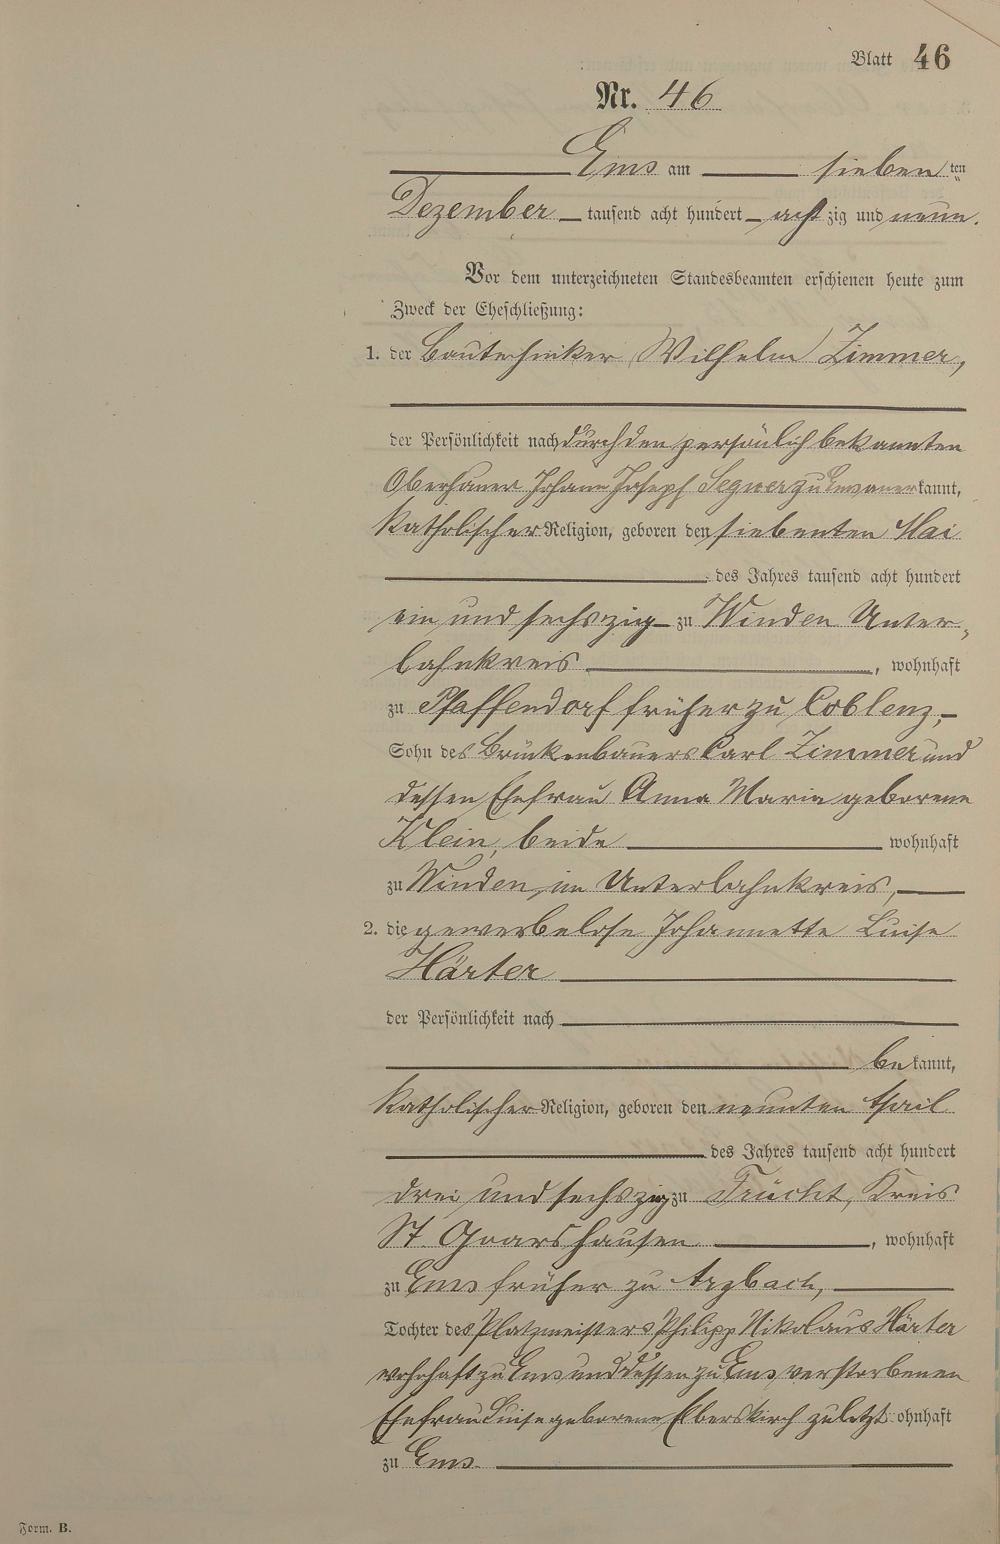 Blatt 46
Nr. 46
Ems am sieben ten
Dezember tausend acht hundert acht zig und neun.
Vor dem unterzeichneten Standesbeamten erschienen heute zum
Zweck der Eheschließung:
1. der Bautechniker Wilhelm Zimmer,
der Persönlichkeit nach durch den persönlich bekannten
Oberhauer Johann Joseph Segner zu Ems anerkannt,
katholischer Religion, geboren den siebenten Mai
des Jahres tausend acht hundert
ein und sechszig zu Winden Unter-
lahnkreis, wohnhaft
zu Pfaffendorf früher zu Coblenz,
Sohn des Brückenbauers Carl Zimmer und
dessen Ehefrau Anna Maria geborene
Klein, beide wohnhaft
zu Winden, im Unterlahnkreis,
2. die gewerbelose Johannette Luise
Härter
der Persönlichkeit nach
bekannt,
katholischer Religion, geboren den neunten April
des Jahres tausend acht hundert
drei und sechszig zu Frücht, Kreis
St. Goarshausen, wohnhaft
zu Ems früher zu Arzbach,
Tochter des Platzmeisters Philipp Nikolaus Härter
wohnhaft zu Ems und dessen zu Ems verstorbenen
Ehefrau Luise geborene Elberskirch zuletzt wohnhaft
zu Ems
Form. B.